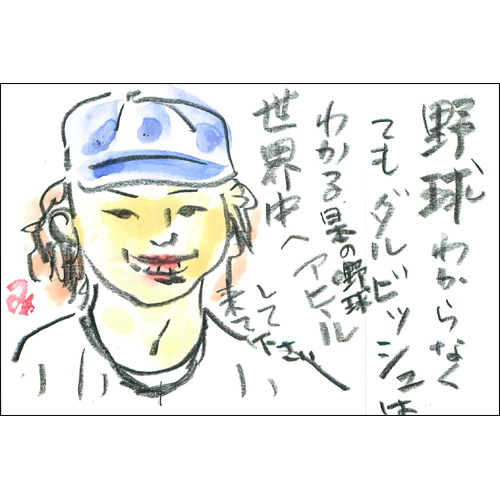 野球わからなく
てもダルビッシュは
わかる日本の野球
世界中へアピール
して来て下さい
み